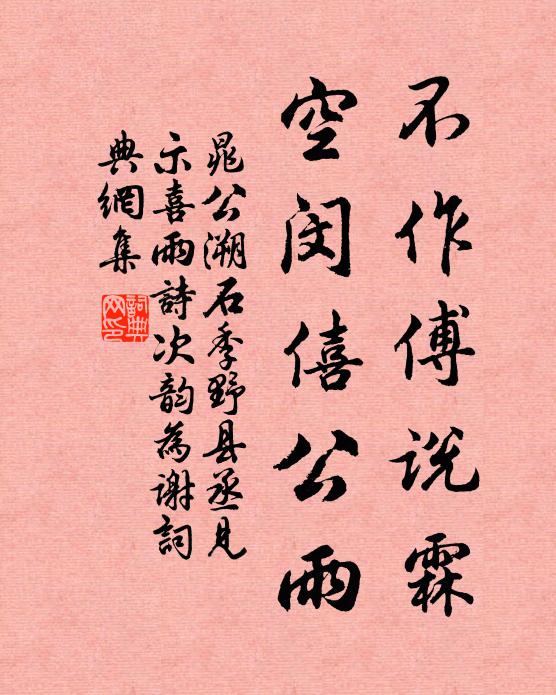 不作傅说霖
空闵僖公雨
晁公溯石季野县丞见
示喜雨詩次韵為谢詞
典網集
詞典网印